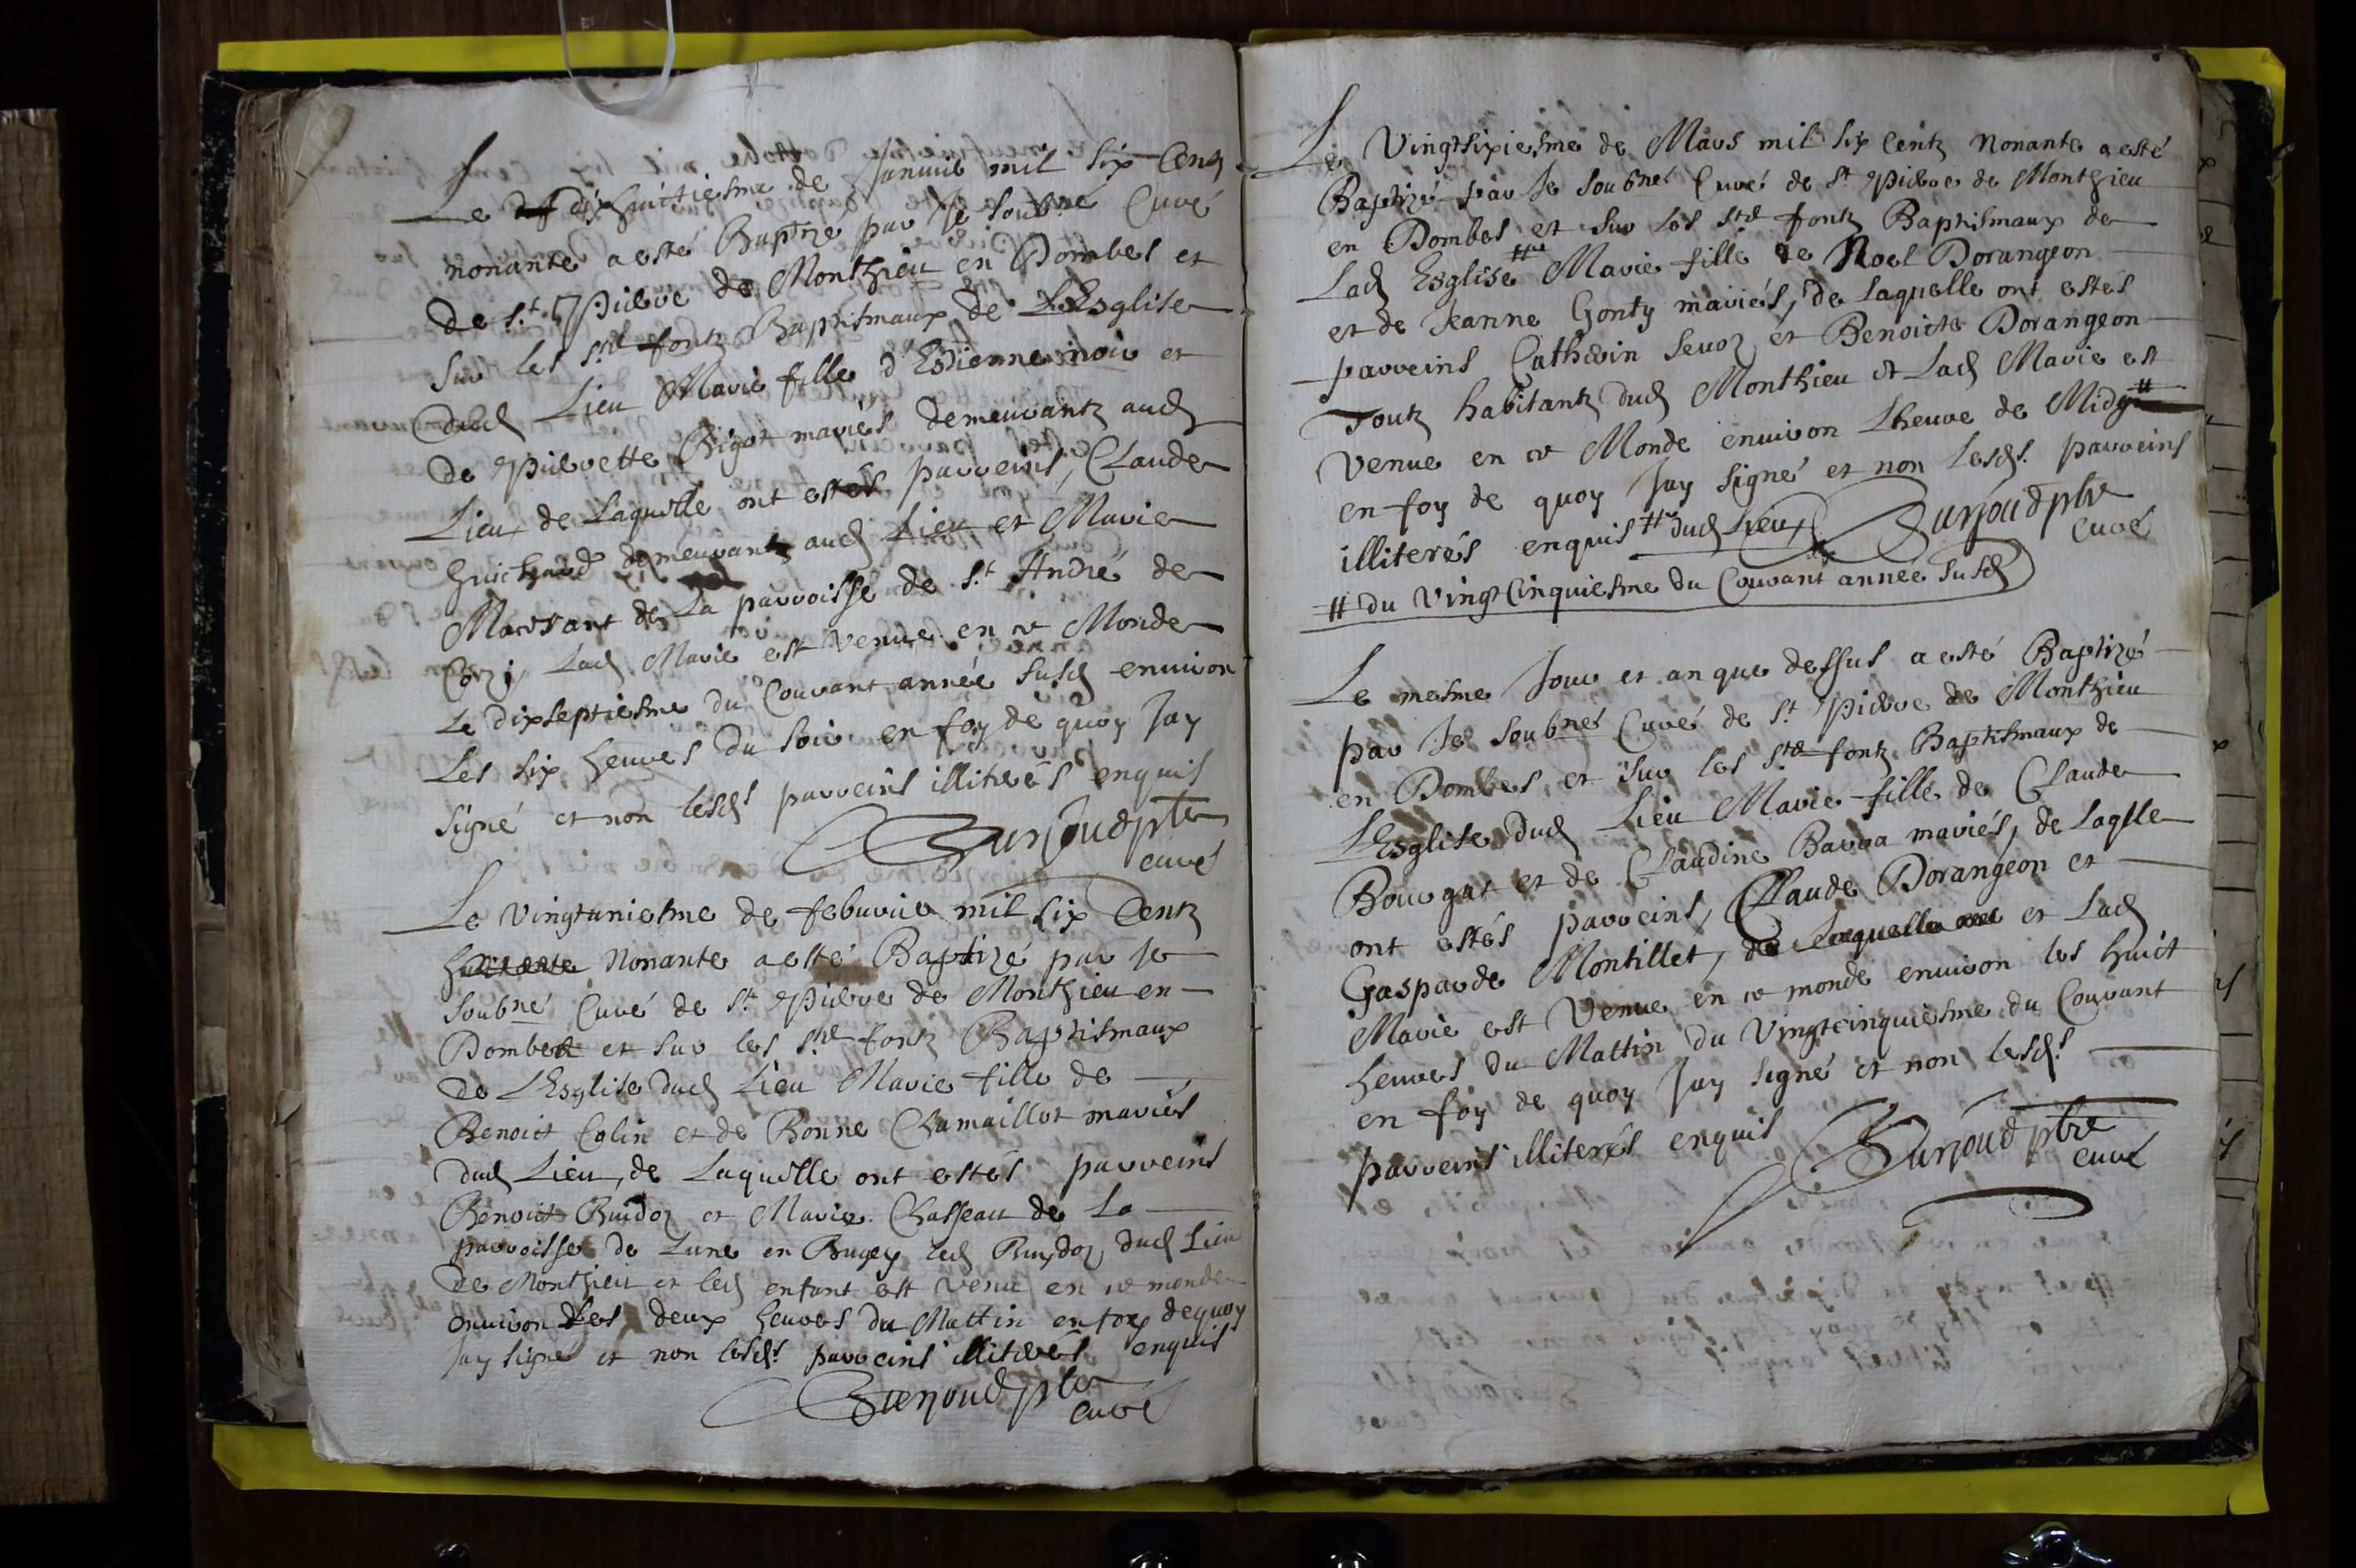 Le dixhuictiesme de Januier mil six Centz
nonante a esté Baptizé par Je soub.né Curé
de S.t Pierre de Monthieu en Dombes et
sur les S.tes fontz Baptismaux de L'Esglise
dud Lieu Marie fille d'Estienne noir et
de Pierrette Bigot mariés demeurantz aud
Lieu, de Laquelle ont estés parreins, Claude
Guichard demeurant aud Lieu et Marie
de La parroisse de S.t André de
Corzi, Lad Marie est Venue en ce Monde
Le dixseptiesme du Courant année susd enuiron
Les six heures du soir en foy de quoy Jay
signé et non lesds parreins illiterés enquis
Surjoud ptre
curé
Le vingtuniesme de feburier mil six Centz
huictante Nonante a esté Baptizé par Je
soubné Curé de St Pierre de Monthieu en
Dombes et sur les Stes fontz Baptismaux
de LEsglise dud Lieu Marie fille de
Benoict Colin et de Bonne Chamaillot mariés
dud Lieu, de Laquelle ont estés parreins
Benoict Buidoz et Marie Chasseau de La
parroisse de Lune en Bugey led Buydoz dud Lieu
de Monthieu et led enfant est Venu en ce monde
enuiron Les deux heures du Mattin en foy de quoy
Jay signé et non lesds parreins illiterés enquis
Surjoud ptre
curé
Le Vingtsixiesme de Mars mil six Centz Nonante a esté
Baptizé par Je soubné Curé de St Pierre de Monthieu
en Dombes et sur les Stes fontz Baptismaux de
Lad Esglise # Marie fille de Noel Dorangeon
et de Jeanne Gonty mariés, de Laquelle ont estés
parreins Catherin Seuoz et Benoicte Dorangeon
Toutz habitantz dud Monthieu et Lad Marie est
Venue en ce Monde enuiron Lheure de Midy #
en foy de quoy Jay signé et non Lesds. parreins
illiterés enquis # dud Lieu Surjoud ptre
curé
# du Vingt Cinquiesme du Courant année susd
Le mesme Jour et an que dessus a esté Baptizé
par Je soubné Curé de St Pierre de Monthieu
en Dombes, et sur les Stes fontz Baptismaux de
LEsglise dud Lieu Marie fille de Claude
Bourgat et de Claudine Barra mariés, de Laqlle
ont estés parreins, Claude Dorangeon et
Gasparde Montillet, de Laquelle et Lad
Marie est Venue en ce monde enuiron les huict
heures du Mattin du Vingtcinquiesme du Courant
en foy de quoy Jay signé et non lesds
parreins illiterés enquis Surjoud ptre
curé